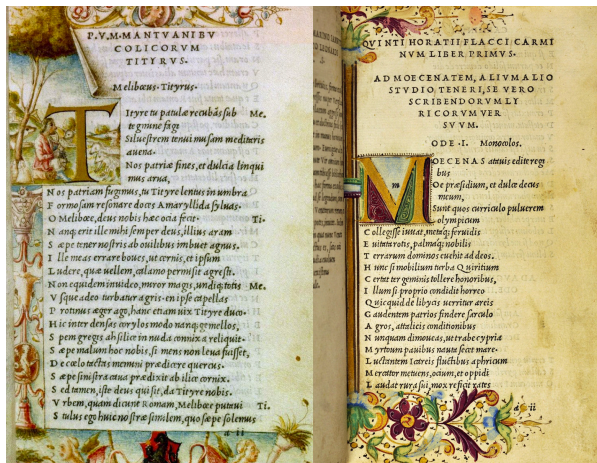 P.V.M.MANTVANI BV
COLICORVM
TITYRVS.
Melibœus. Tityrus.
Ityre tu patulæ recubãs sub Me.
tegmine fagi
Siluestrem tenui musam meditaris
auena.
Nos patriæ fines, et dulcia linqui
mus arua,
Nos patriam fugimus, tu Tityre lentus in umbra
Formosam resonare doces Amaryllida syluas.
O Melibœe, deus nobis hæc ocia fecit. Ti.
Nanq; erit ille mihi semper deus, illius aram
Sæpe tener nostris ab ouilibus imbuet agnus.
Ille meas errare boues, ut cernis, et ipsum
Ludere, quæ uellem, calamo permisit agresti.
Non equidem inuideo, miror magis, undiq; totis Me.
Vsque adeo turbatur agris. en ipse capellas
Protinus æger ago, hanc etiam uix Tityre duco.
Hic inter densas corylos modo nanq; gemellos,
Spem gregis ah silice in nuda connixa reliquit.
Sæpe malum hoc nobis, si mens non leua fuisset,
De cœlo tactas memini prædicere quercus.
Sæpe sinistra caua prædixit ab ilice cornix.
Sed tamen, iste deus qui sit, da Tityre nobis.
Vrbem, quam dicunt Romam, Melibœe putaui Ti.
Stultus ego huic nostræ similem, quo sæpe solemus
a ii
QVINTI HORATII FLACCI CARMI
NVM LIBER PRIMVS.
AD MOECENATEM, ALIVM ALIO
STVDIO TENERI, SE VERO
SCRIBENDORVM LY
RICORVM VER
SVVM.
ODE .I. Monocolos.
M
OECENAS atauis edite regi
bus
Oe præsidium, et dulce decus
meum,
Sunt quos curriculo puluerem
olympicum
Collegisse iuuat, metaq; feruidis
Euitata rotis, palmaq; nobilis
Terrarum dominos euehit ad deos.
Hunc si mobilium turba Quiritium
Certat tergeminis tollere honoribus,
Illum si proprio condidit horreo
Quicquid de libycis uerritur areis
Gaudentem patrios findere sarculo
Agros, attalicis conditionibus
Nunquam dimoueas, ut trabe cypria
Myrtoum pauidus nauta secet mare.
Luctantem Icareis fluctibus aphricum
Mercator metuens, ocium, et oppidi
Laudat rura sui, mox reficit rates
a ii